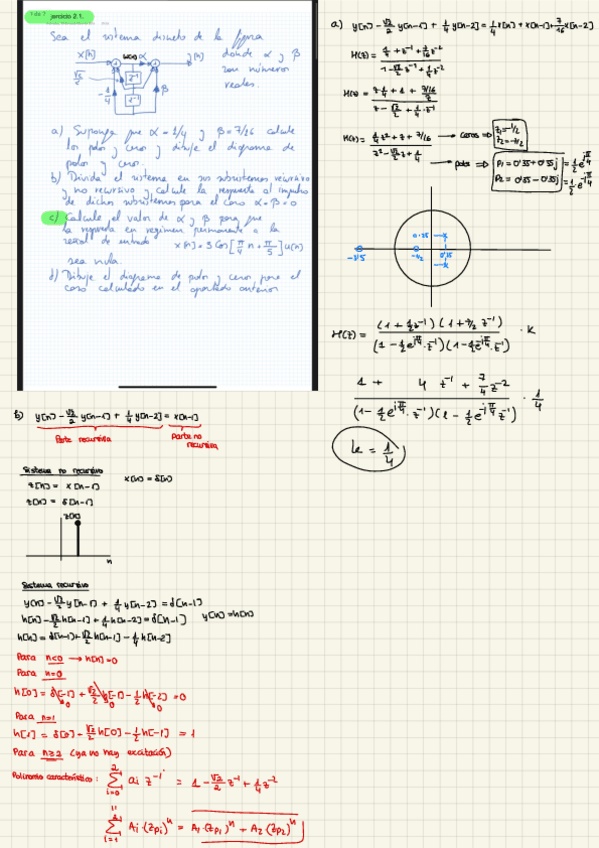 1 de 7 Ejercicio 2.1.
Sea el sistema discreto de la figura
x[n] w[n] α y[n]
√2/2 z⁻¹
-1/4 z⁻¹ β
donde α y β
son números
reales.
a) Suponga que α=1/4 y β=7/16 calcule
los polos y ceros y dibuje el diagrama de
polos y ceros.
b) Divida el sistema en sus subsistemas recursivo
y no recursivo y calcule la respuesta al impulso
de dichos subsistemas para el caso α=β=0
c) Calcule el valor de α y β para que
la respuesta en regimen permanente a la
señal de entrada
x[n] = 3 Cos[π/4 n + π/5] u[n]
sea nula.
d) Dibuje el diagrama de polos y ceros para el
caso calculado en el apartado anterior
a) y[n] - √2/2 y[n-1] + 1/4 y[n-2] = 1/4 x[n] + x[n-1] + 7/16 x[n-2]
H(z) = (1/4 + z⁻¹ + 7/16 z⁻²) / (1 - √2/2 z⁻¹ + 1/4 z⁻²)
H(z) = (z·1/4 + 1 + 7/16/z) / (z - √2/2 + 1/4·z⁻¹)
H(z) = (1/4 z² + z + 7/16) / (z² - √2/2 z + 1/4)
→ ceros ⇒ z₁ = -1/2
z₂ = -7/2
→ polos ⇒ p₁ = 0'35 + 0'35j = 1/2 e^(jπ/4)
p₂ = 0'35 - 0'35j = 1/2 e^(-jπ/4)
-3'5 -1/2 0.35 0'35
H(z) = (1 + 1/2 z⁻¹)(1 + 7/2 z⁻¹) / (1 - 1/2 e^(jπ/4)·z⁻¹)(1 - 1/2 e^(-jπ/4)·z⁻¹) · K
1 + 4 z⁻¹ + 7/4 z⁻² / (1 - 1/2 e^(jπ/4)·z⁻¹)(1 - 1/2 e^(-jπ/4) z⁻¹) · 1/4
k = 1/4
b) y[n] - √2/2 y[n-1] + 1/4 y[n-2] = x[n-1]
Parte recursiva Parte no
recursiva
Sistema no recursivo
z[n] = x[n-1] x[n] = δ[n]
z[n] = δ[n-1]
z[n]
n
Sistema recursivo
y[n] - √2/2 y[n-1] + 1/4 y[n-2] = δ[n-1]
h[n] - √2/2 h[n-1] + 1/4 h[n-2] = δ[n-1] y[n] = h[n]
h[n] = δ[n-1] + √2/2 h[n-1] - 1/4 h[n-2]
Para n<0 → h[n] = 0
Para n=0
h[0] = δ[-1] + √2/2 h[-1] - 1/2 h[-2] = 0
Para n=1
h[1] = δ[0] + √2/2 h[0] - 1/2 h[-1] = 1
Para n≥2 (ya no hay excitación)
Polinomio característico: ∑ᵢ₌₀² aᵢ z⁻ⁱ = 1 - √2/2 z⁻¹ + 1/4 z⁻²
∑ᵢ₌₁² Aᵢ·(zpᵢ)ⁿ = A₁·(zp₁)ⁿ + A₂(zp₂)ⁿ